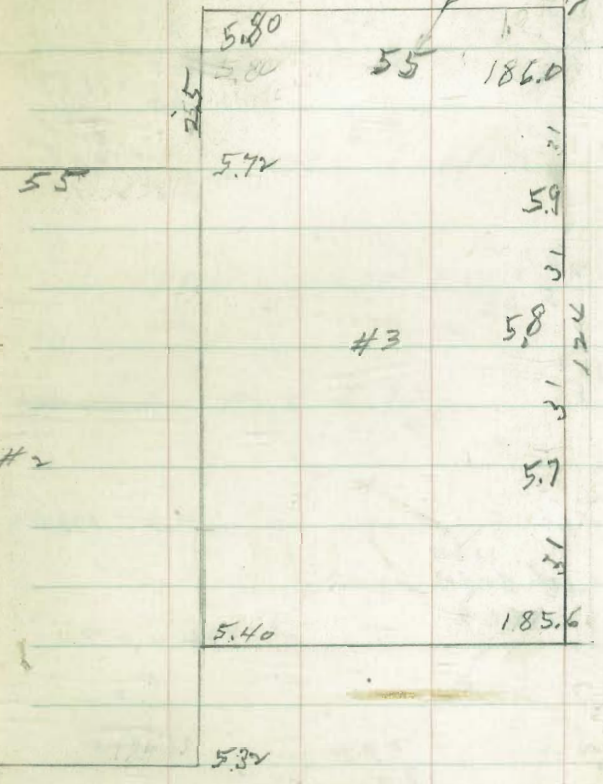 5.80
5.80
55
186.0
25
31
55
5.72
5.9
31
#3
5.8
124
31
#2
5.7
31
5.40
185.6
5.32